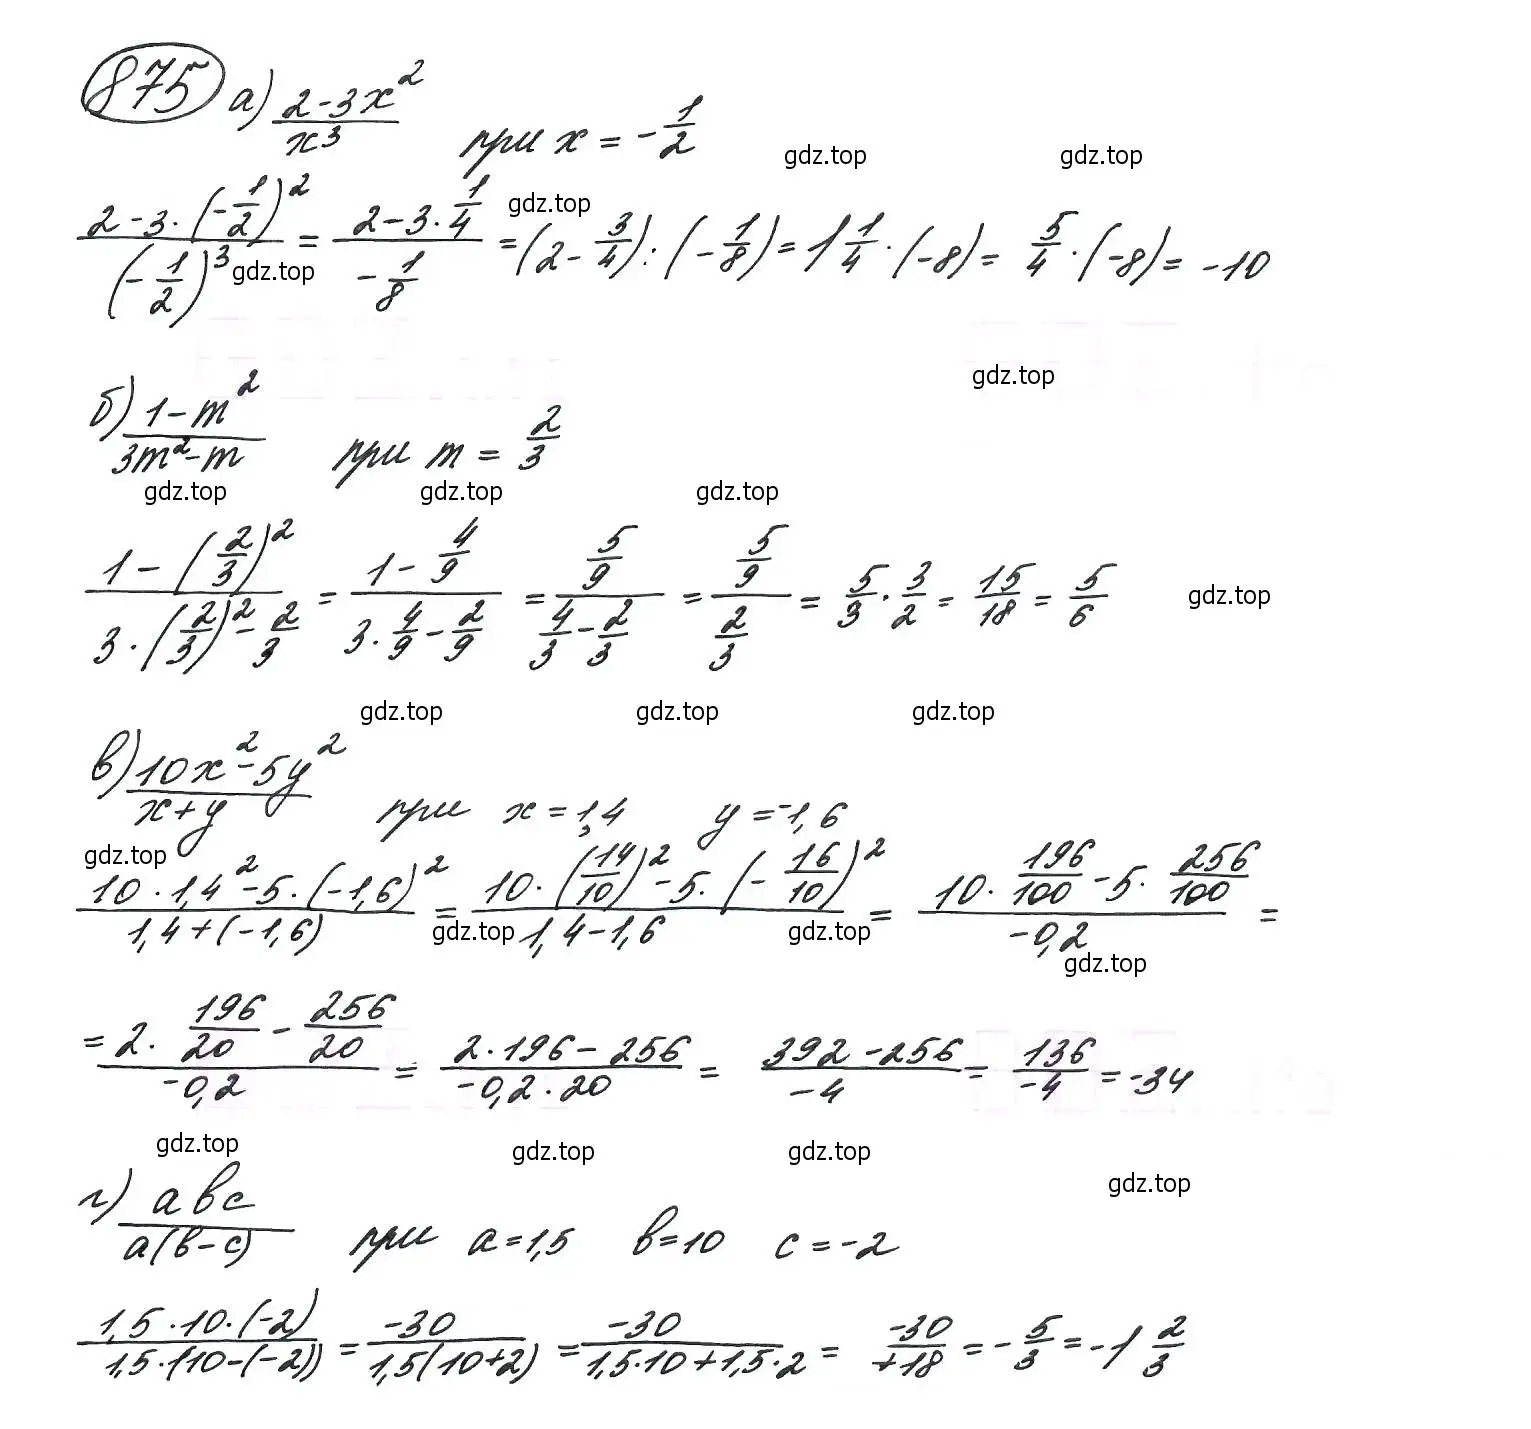 875 а) (2-3x²)/x³ при x = -1/2 gdz.top gdz.top
(2-3·(-1/2)²)/(-1/2)³ = (2-3·1/4)/(-1/8) = (2-3/4):(-1/8) = 1 1/4·(-8) = 5/4·(-8) = -10 gdz.top gdz.top
gdz.top
б) (1-m²)/(3m²-m) при m = 2/3
gdz.top gdz.top gdz.top
(1-(2/3)²)/(3·(2/3)²-2/3) = (1-4/9)/(3·4/9-2/9) = (5/9)/(4/3-2/3) = (5/9)/(2/3) = 5/3·3/2 = 15/18 = 5/6 gdz.top
gdz.top gdz.top gdz.top
в) (10x²-5y²)/(x+y) при x=1,4 y=-1,6
gdz.top
(10·1,4²-5·(-1,6)²)/(1,4+(-1,6)) = (10·(14/10)²-5·(-16/10)²)/(1,4-1,6) = (10·196/100-5·256/100)/(-0,2) =
gdz.top gdz.top gdz.top
= (2·196/20-256/20)/(-0,2) = (2·196-256)/(-0,2·20) = (392-256)/(-4) = 136/(-4) = -34
gdz.top gdz.top gdz.top gdz.top
г) abc/(a(b-c)) при a=1,5 b=10 c=-2
(1,5·10·(-2))/(1,5·(10-(-2))) = -30/(1,5(10+2)) = -30/(1,5·10+1,5·2) = -30/(+18) = -5/3 = -1 2/3